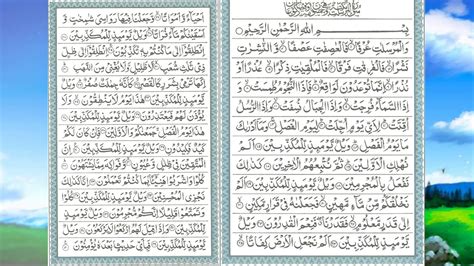 بِسْمِ اللهِ الرَّحْمٰنِ الرَّحِيْمِ
وَالْمُرْسَلٰتِ عُرْفًا فَالْعٰصِفٰتِ عَصْفًا وَّالنّٰشِرٰتِ
نَشْرًا فَالْفٰرِقٰتِ فَرْقًا فَالْمُلْقِيٰتِ ذِكْرًا عُذْرًا اَوْ
نُذْرًا اِنَّمَا تُوْعَدُوْنَ لَوَاقِعٌ فَاِذَا النُّجُوْمُ طُمِسَتْ وَ
اِذَا السَّمَآءُ فُرِجَتْ وَاِذَا الْجِبَالُ نُسِفَتْ وَاِذَا الرُّسُلُ
اُقِّتَتْ لِاَيِّ يَوْمٍ اُجِّلَتْ لِيَوْمِ الْفَصْلِ وَمَآ اَدْرٰىكَ
مَا يَوْمُ الْفَصْلِ وَيْلٌ يَّوْمَئِذٍ لِّلْمُكَذِّبِيْنَ اَلَمْ
نُهْلِكِ الْاَوَّلِيْنَ ثُمَّ نُتْبِعُهُمُ الْاٰخِرِيْنَ كَذٰلِكَ
نَفْعَلُ بِالْمُجْرِمِيْنَ وَيْلٌ يَّوْمَئِذٍ لِّلْمُكَذِّبِيْنَ اَلَمْ
نَخْلُقْكُّمْ مِّنْ مَّآءٍ مَّهِيْنٍ فَجَعَلْنٰهُ فِيْ قَرَارٍ مَّكِيْنٍ
اِلٰى قَدَرٍ مَّعْلُوْمٍ فَقَدَرْنَا فَنِعْمَ الْقٰدِرُوْنَ وَيْلٌ
يَّوْمَئِذٍ لِّلْمُكَذِّبِيْنَ اَلَمْ نَجْعَلِ الْاَرْضَ كِفَاتًا
اَحْيَآءً وَّاَمْوَاتًا وَّجَعَلْنَا فِيْهَا رَوَاسِيَ شٰمِخٰتٍ وَّ
اَسْقَيْنٰكُمْ مَّآءً فُرَاتًا وَيْلٌ يَّوْمَئِذٍ لِّلْمُكَذِّبِيْنَ
اِنْطَلِقُوْٓا اِلٰى مَا كُنْتُمْ بِهٖ تُكَذِّبُوْنَ اِنْطَلِقُوْٓا اِلٰى ظِلٍّ
ذِيْ ثَلٰثِ شُعَبٍ لَّا ظَلِيْلٍ وَّلَا يُغْنِيْ مِنَ اللَّهَبِ
اِنَّهَا تَرْمِيْ بِشَرَرٍ كَالْقَصْرِ كَاَنَّهٗ جِمٰلَتٌ صُفْرٌ وَيْلٌ
يَّوْمَئِذٍ لِّلْمُكَذِّبِيْنَ هٰذَا يَوْمُ لَا يَنْطِقُوْنَ وَلَا
يُؤْذَنُ لَهُمْ فَيَعْتَذِرُوْنَ وَيْلٌ يَّوْمَئِذٍ لِّلْمُكَذِّبِيْنَ
هٰذَا يَوْمُ الْفَصْلِ جَمَعْنٰكُمْ وَالْاَوَّلِيْنَ فَاِنْ كَانَ لَكُمْ
كَيْدٌ فَكِيْدُوْنِ وَيْلٌ يَّوْمَئِذٍ لِّلْمُكَذِّبِيْنَ اِنَّ
الْمُتَّقِيْنَ فِيْ ظِلٰلٍ وَّعُيُوْنٍ وَّفَوَاكِهَ مِمَّا يَشْتَهُوْنَ
كُلُوْا وَاشْرَبُوْا هَنِيْٓئًا بِمَا كُنْتُمْ تَعْمَلُوْنَ اِنَّا كَذٰلِكَ
نَجْزِي الْمُحْسِنِيْنَ وَيْلٌ يَّوْمَئِذٍ لِّلْمُكَذِّبِيْنَ كُلُوْا
وَتَمَتَّعُوْا قَلِيْلًا اِنَّكُمْ مُّجْرِمُوْنَ وَيْلٌ يَّوْمَئِذٍ
لِّلْمُكَذِّبِيْنَ وَاِذَا قِيْلَ لَهُمُ ارْكَعُوْا لَا يَرْكَعُوْنَ وَيْلٌ
يَّوْمَئِذٍ لِّلْمُكَذِّبِيْنَ فَبِاَيِّ حَدِيْثٍۢ بَعْدَهٗ يُؤْمِنُوْنَ